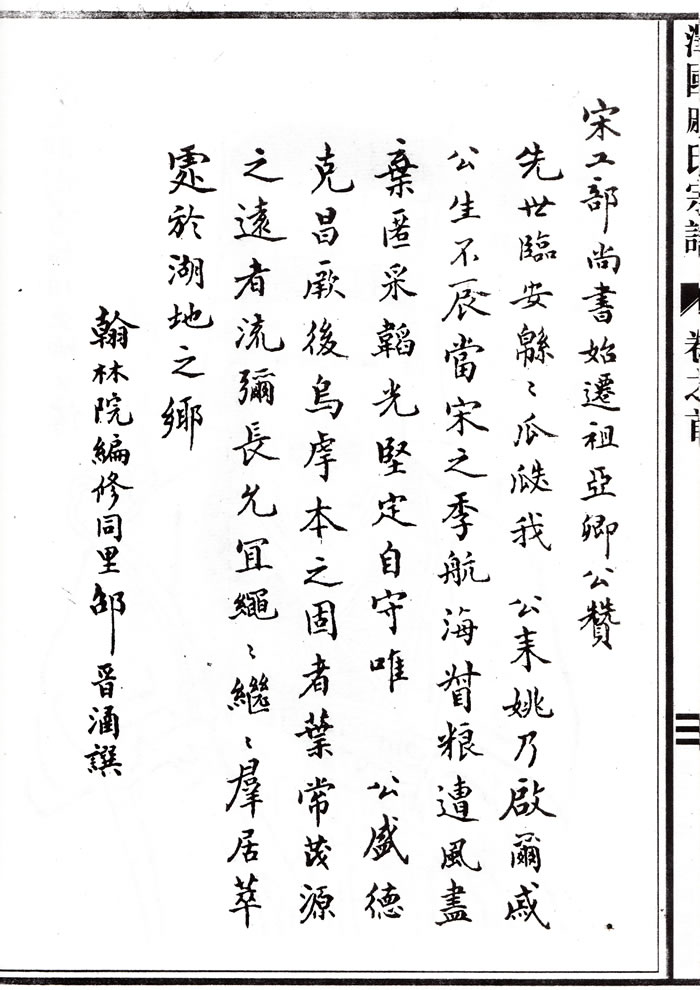 宋工部尚書始遷祖亞卿公贊
先世臨安緜〻瓜瓞我 公来姚乃啟爾戚
公生不辰當宋之季航海督粮遭風盡
棄匿采韜光堅定自守唯 公盛德
克昌厥後烏虖本之固者葉常茂源
之遠者流彌長允宜繩〻繼〻羣居萃
處於湖地之鄉
翰林院編修同里邵晋涵譔